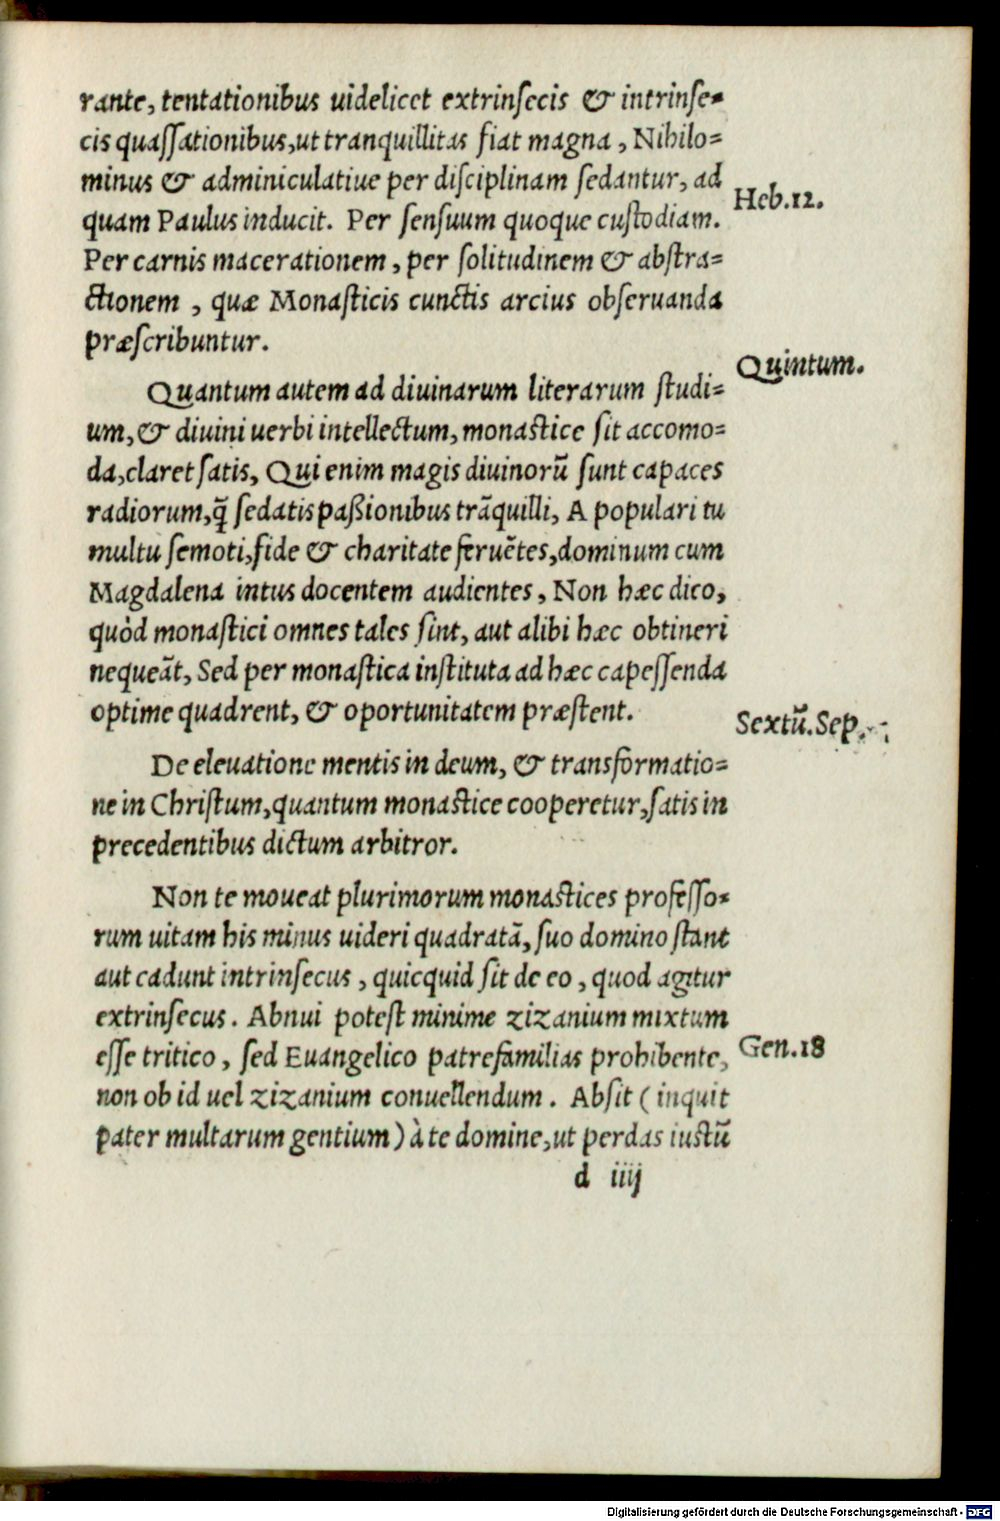 rante, tentationibus uidelicet extrinſecis & intrinſe-
cis quaſſationibus,ut tranquillitas fiat magna, Nihilo=
minus & adminiculatiue per diſciplinam ſedantur, ad
Heb.12.
quam Paulus inducit. Per ſenſuum quoque cuſtodiam.
Per carnis macerationem, per ſolitudinem & abſtra=
ctionem, quæ Monaſticis cunctis arcius obſeruanda
præſcribuntur.
Quintum.
Quantum autem ad diuinarum literarum ſtudi=
um, & diuini uerbi intellectum, monaſtice ſit accomo=
da,claret ſatis, Qui enim magis diuinorũ ſunt capaces
radiorum,q̃ ſedatis paßionibus trãquilli, A populari tu
multu ſemoti,fide & charitate feruẽtes,dominum cum
Magdalena intus docentem audientes, Non hæc dico,
quòd monaſtici omnes tales ſint, aut alibi hæc obtineri
nequeãt, Sed per monaſtica inſtituta ad hæc capeſſenda
optime quadrent, & oportunitatem præſtent.
Sextũ.Sep.
De eleuatione mentis in deum, & transformatio=
ne in Chriſtum,quantum monaſtice cooperetur,ſatis in
precedentibus dictum arbitror.
Non te moueat plurimorum monaſtices profeſſo-
rum uitam his minus uideri quadratã, ſuo domino ſtant
aut cadunt intrinſecus, quicquid ſit de eo, quod agitur
extrinſecus. Abnui poteſt minime zizanium mixtum
eſſe tritico, ſed Euangelico patrefamilias prohibente,
Gen.18
non ob id uel zizanium conuellendum. Abſit (inquit
pater multarum gentium) à te domine,ut perdas iuſtũ
d iiij
Digitalisierung gefördert durch die Deutsche Forschungsgemeinschaft - DFG